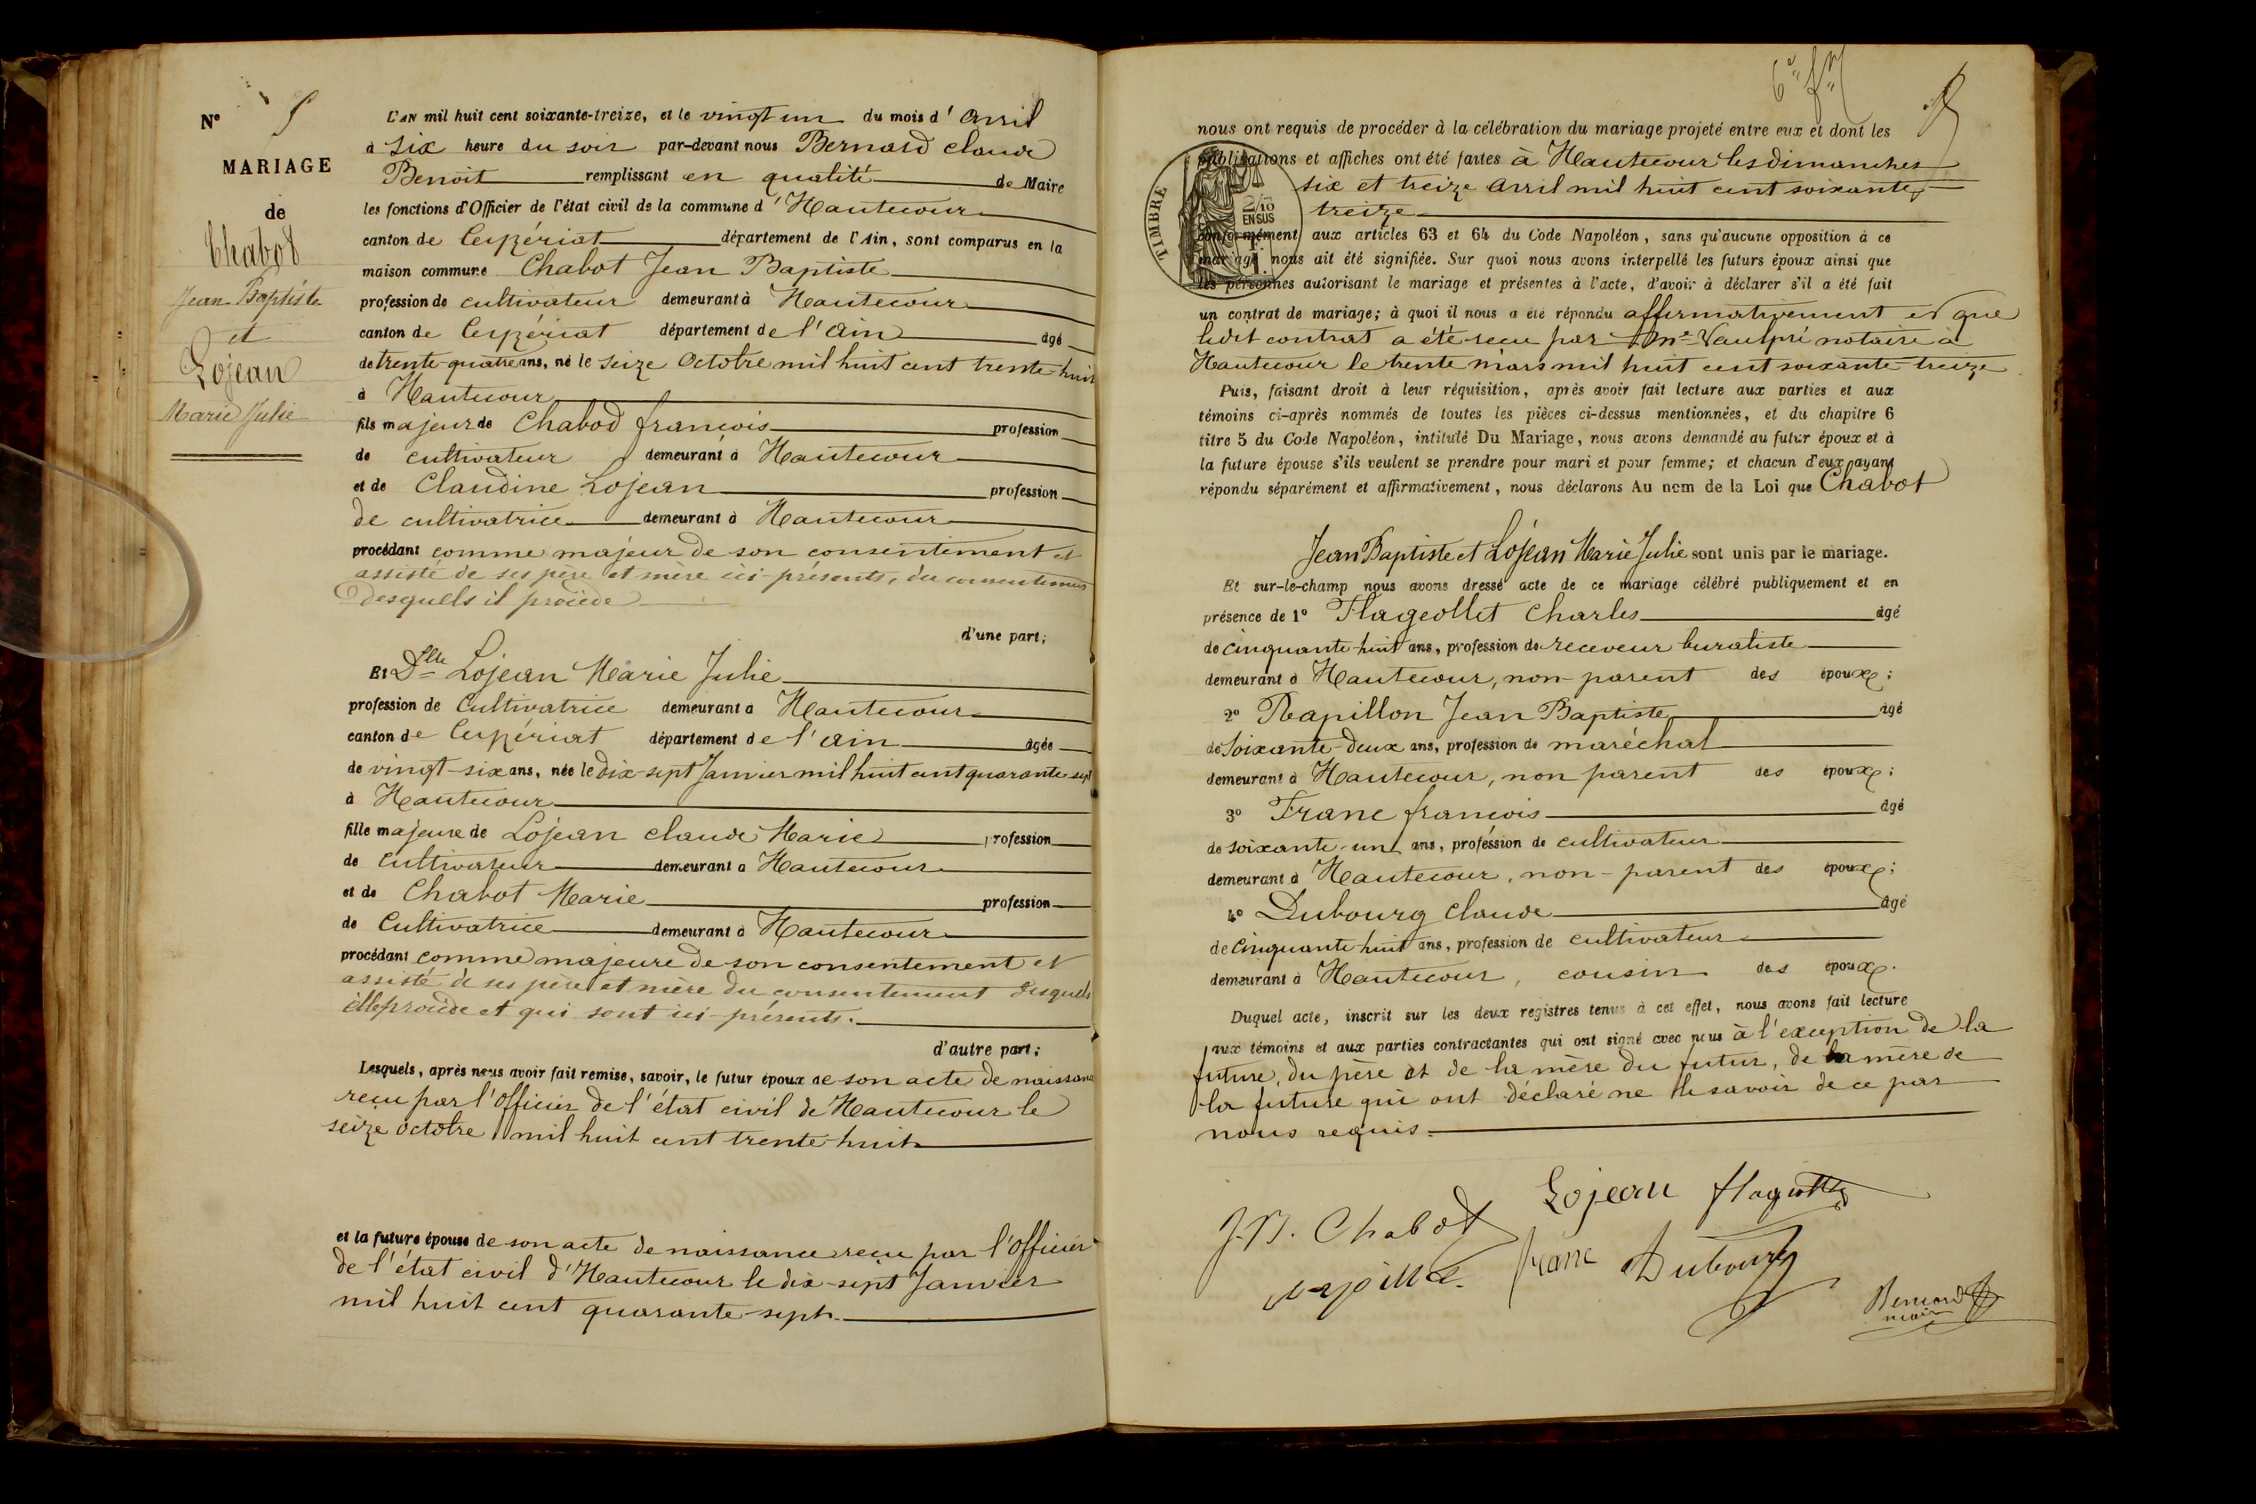 N° 5
MARIAGE
de
Chabot
Jean Baptiste
et
Lojean
Marie Julie
L'AN mil huit cent soixante-treize, et le vingt un du mois d'avril
à six heure du soir par-devant nous Bernard Claude
Benoit remplissant en qualité de Maire
les fonctions d'Officier de l'état civil de la commune d'Hautecour
canton de Ceyzériat département de l'Ain, sont comparus en la
maison commune Chabot Jean Baptiste
profession de cultivateur demeurant à Hautecour
canton de Ceyzériat département de l'ain âgé
de trente-quatre ans, né le seize Octobre mil huit cent trente-huit
à Hautecour
fils majeur de Chabod françois profession
de cultivateur demeurant à Hautecour
et de Claudine Lojean profession
de cultivatrice demeurant à Hautecour
procédant comme majeur de son consentement et
assisté de ses père et mère ici-présents, du consentement
desquels il procède
d'une part;
Et Dlle Lojean Marie Julie
profession de Cultivatrice demeurant à Hautecour
canton de Ceyzériat département de l'ain âgée
de vingt-six ans, née le dix-sept Janvier mil huit cent quarante sept
à Hautecour
fille majeure de Lojean claude Marie profession
de cultivateur demeurant à Hautecour
et de Chabot Marie profession
de Cultivatrice demeurant à Hautecour
procédant comme majeure de son consentement et
assisté de ses père et mère du consentement desquels
elle procède et qui sont ici-présents.
d'autre part;
Lesquels, après nous avoir fait remise, savoir, le futur époux de son acte de naissance
reçu par l'Officier de l'état civil de Hautecour le
seize octobre mil huit cent trente-huit
et la future épouse de son acte de naissance reçu par l'Officier
de l'état civil d'Hautecour le dix-sept Janvier
mil huit cent quarante-sept.
6e fr
nous ont requis de procéder à la célébration du mariage projeté entre eux et dont les
publications et affiches ont été faites à Hautecour les dimanches
six et treize avril mil huit cent soixante
treize
TIMBRE
2/10
EN SUS
conformément aux articles 63 et 64 du Code Napoléon, sans qu'aucune opposition à ce
mariage nous ait été signifiée. Sur quoi nous avons interpellé les futurs époux ainsi que
les personnes autorisant le mariage et présentes à l'acte, d'avoir à déclarer s'il a été fait
un contrat de mariage; à quoi il nous a été répondu affirmativement et que
ledit contrat a été reçu par Me Vaulpré notaire à
Hautecour le trente mars mil huit cent soixante-treize
Puis, faisant droit à leur réquisition, après avoir fait lecture aux parties et aux
témoins ci-après nommés de toutes les pièces ci-dessus mentionnées, et du chapitre 6
titre 5 du Code Napoléon, intitulé Du Mariage, nous avons demandé au futur époux et à
la future épouse s'ils veulent se prendre pour mari et pour femme; et chacun d'eux ayant
répondu séparément et affirmativement, nous déclarons Au nom de la Loi que Chabot
Jean Baptiste et Lojean Marie Julie sont unis par le mariage.
Et sur-le-champ nous avons dressé acte de ce mariage célébré publiquement et en
présence de 1° Flageollet Charles âgé
de cinquante-huit ans, profession de receveur buraliste
demeurant à Hautecour, non-parent des époux;
2° Rapillon Jean Baptiste âgé
de Soixante-deux ans, profession de maréchal
demeurant à Hautecour, non parent des époux;
3° Franc françois âgé
de soixante-un ans, profession de cultivateur
demeurant à Hautecour, non-parent des époux;
4° Dubourg Claude âgé
de cinquante-huit ans, profession de cultivateur
demeurant à Hautecour, cousin des époux.
Duquel acte, inscrit sur les deux registres tenus à cet effet, nous avons fait lecture
aux témoins et aux parties contractantes qui ont signé avec nous à l'exception de la
future, du père et de la mère du futur, de la mère de
la future qui ont déclaré ne le savoir de ce par
nous requis.
Lojean flageollet
J.B. Chabot
franc Dubourg
Bernard
maire